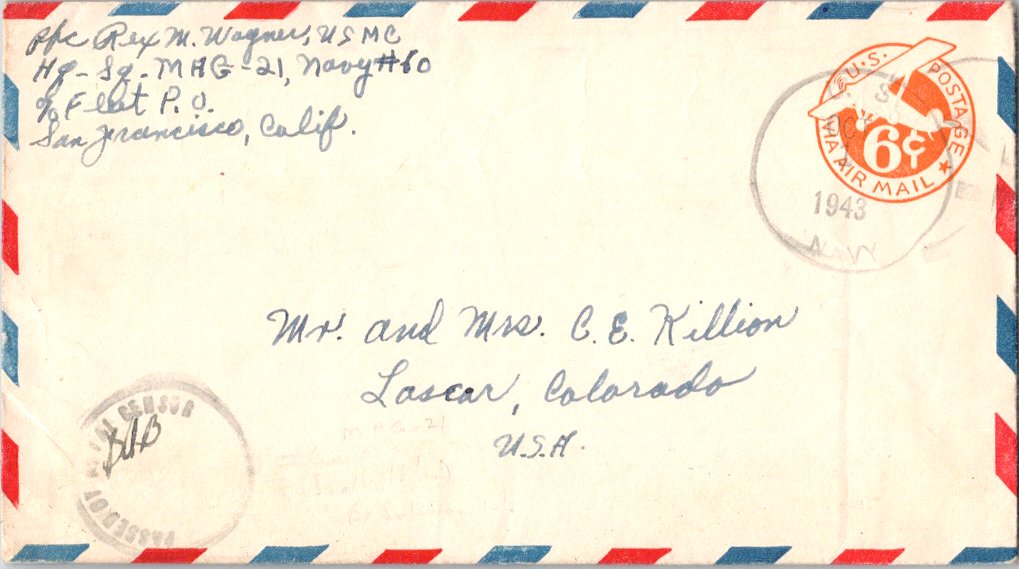 Pfc Rex M. Wagner, USMC
Hq-Sq. MAG-21, Navy #60
℅ Fleet P.O.
San Francisco, Calif.
U.S. POSTAGE
6¢
VIA AIR MAIL
1943
NAVY
Mr. and Mrs. C.E. Killion
Lascar, Colorado
U.S.A.
PASSED BY NAVAL CENSOR
MAG-21